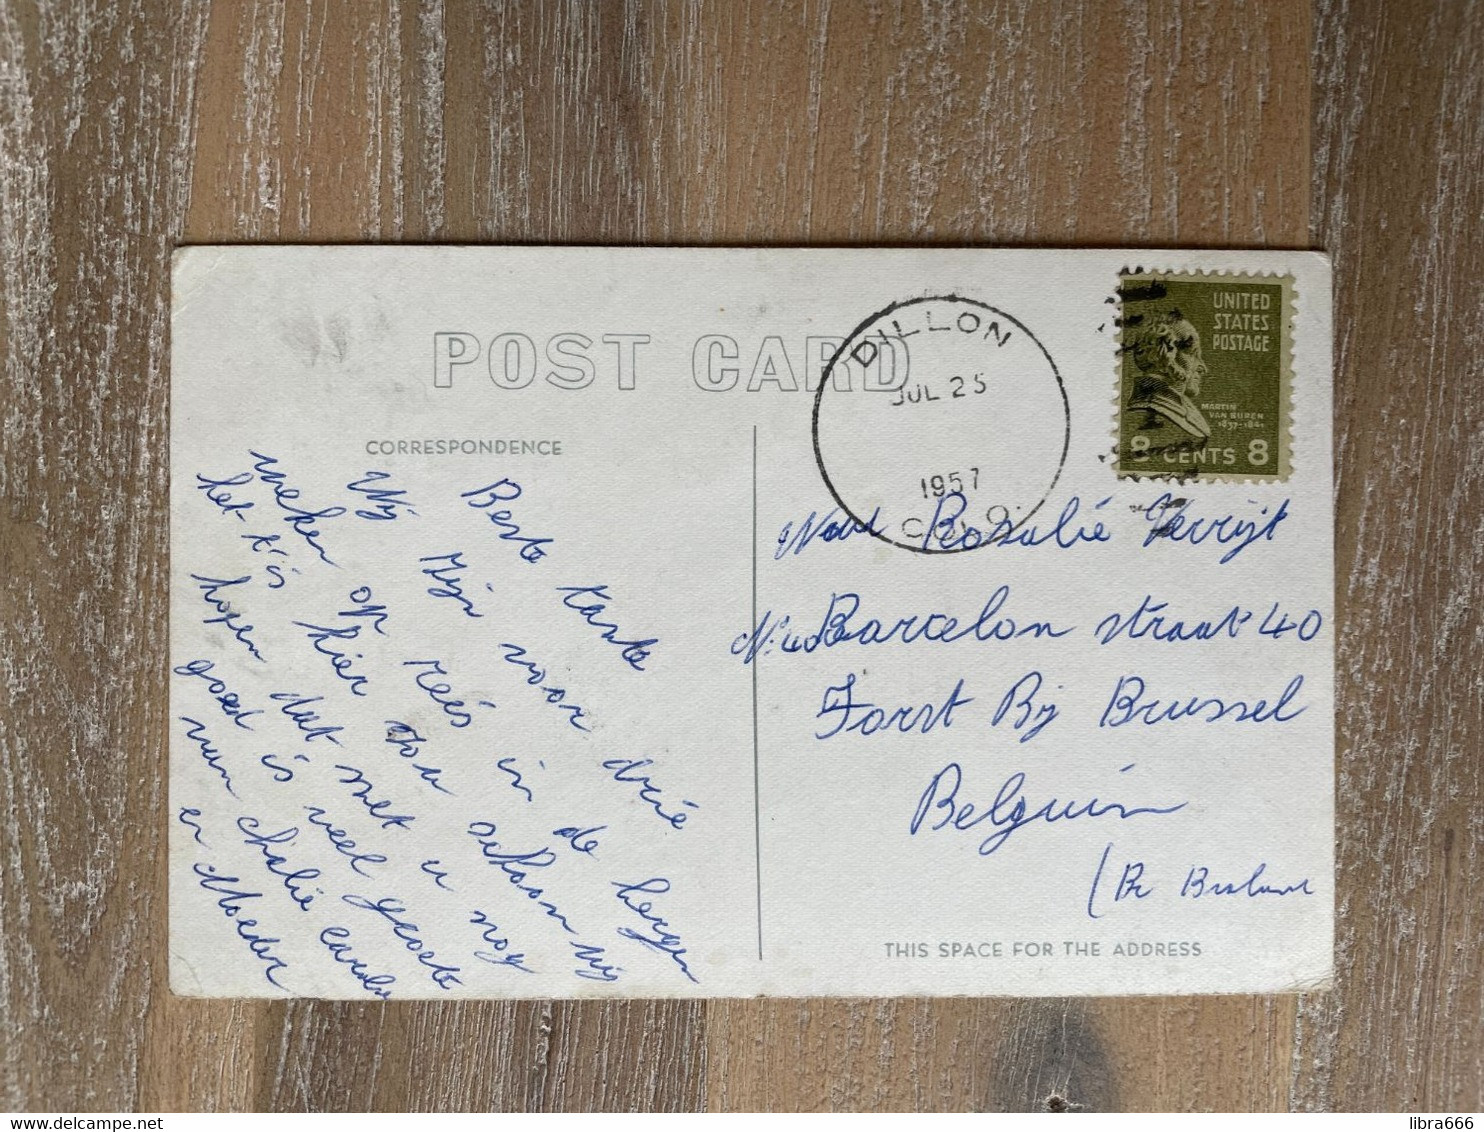 POST CARD
CORRESPONDENCE
Beste tante
Wij zijn voor drie
weken op reés in de bergen
het t'is hier zou schoon wij
hopen dat met u nog
goed is veel groete
van chalie
en Moeder
DILLON
JUL 25
1957
COLO.
UNITED
STATES
POSTAGE
MARTIN
VAN BUREN
1837-1841
8 CENTS 8
Rosalié Verrijt
Barcelon straat 40
Forst Bij Brussel
Belguim
THIS SPACE FOR THE ADDRESS
delcampe.net
libra666